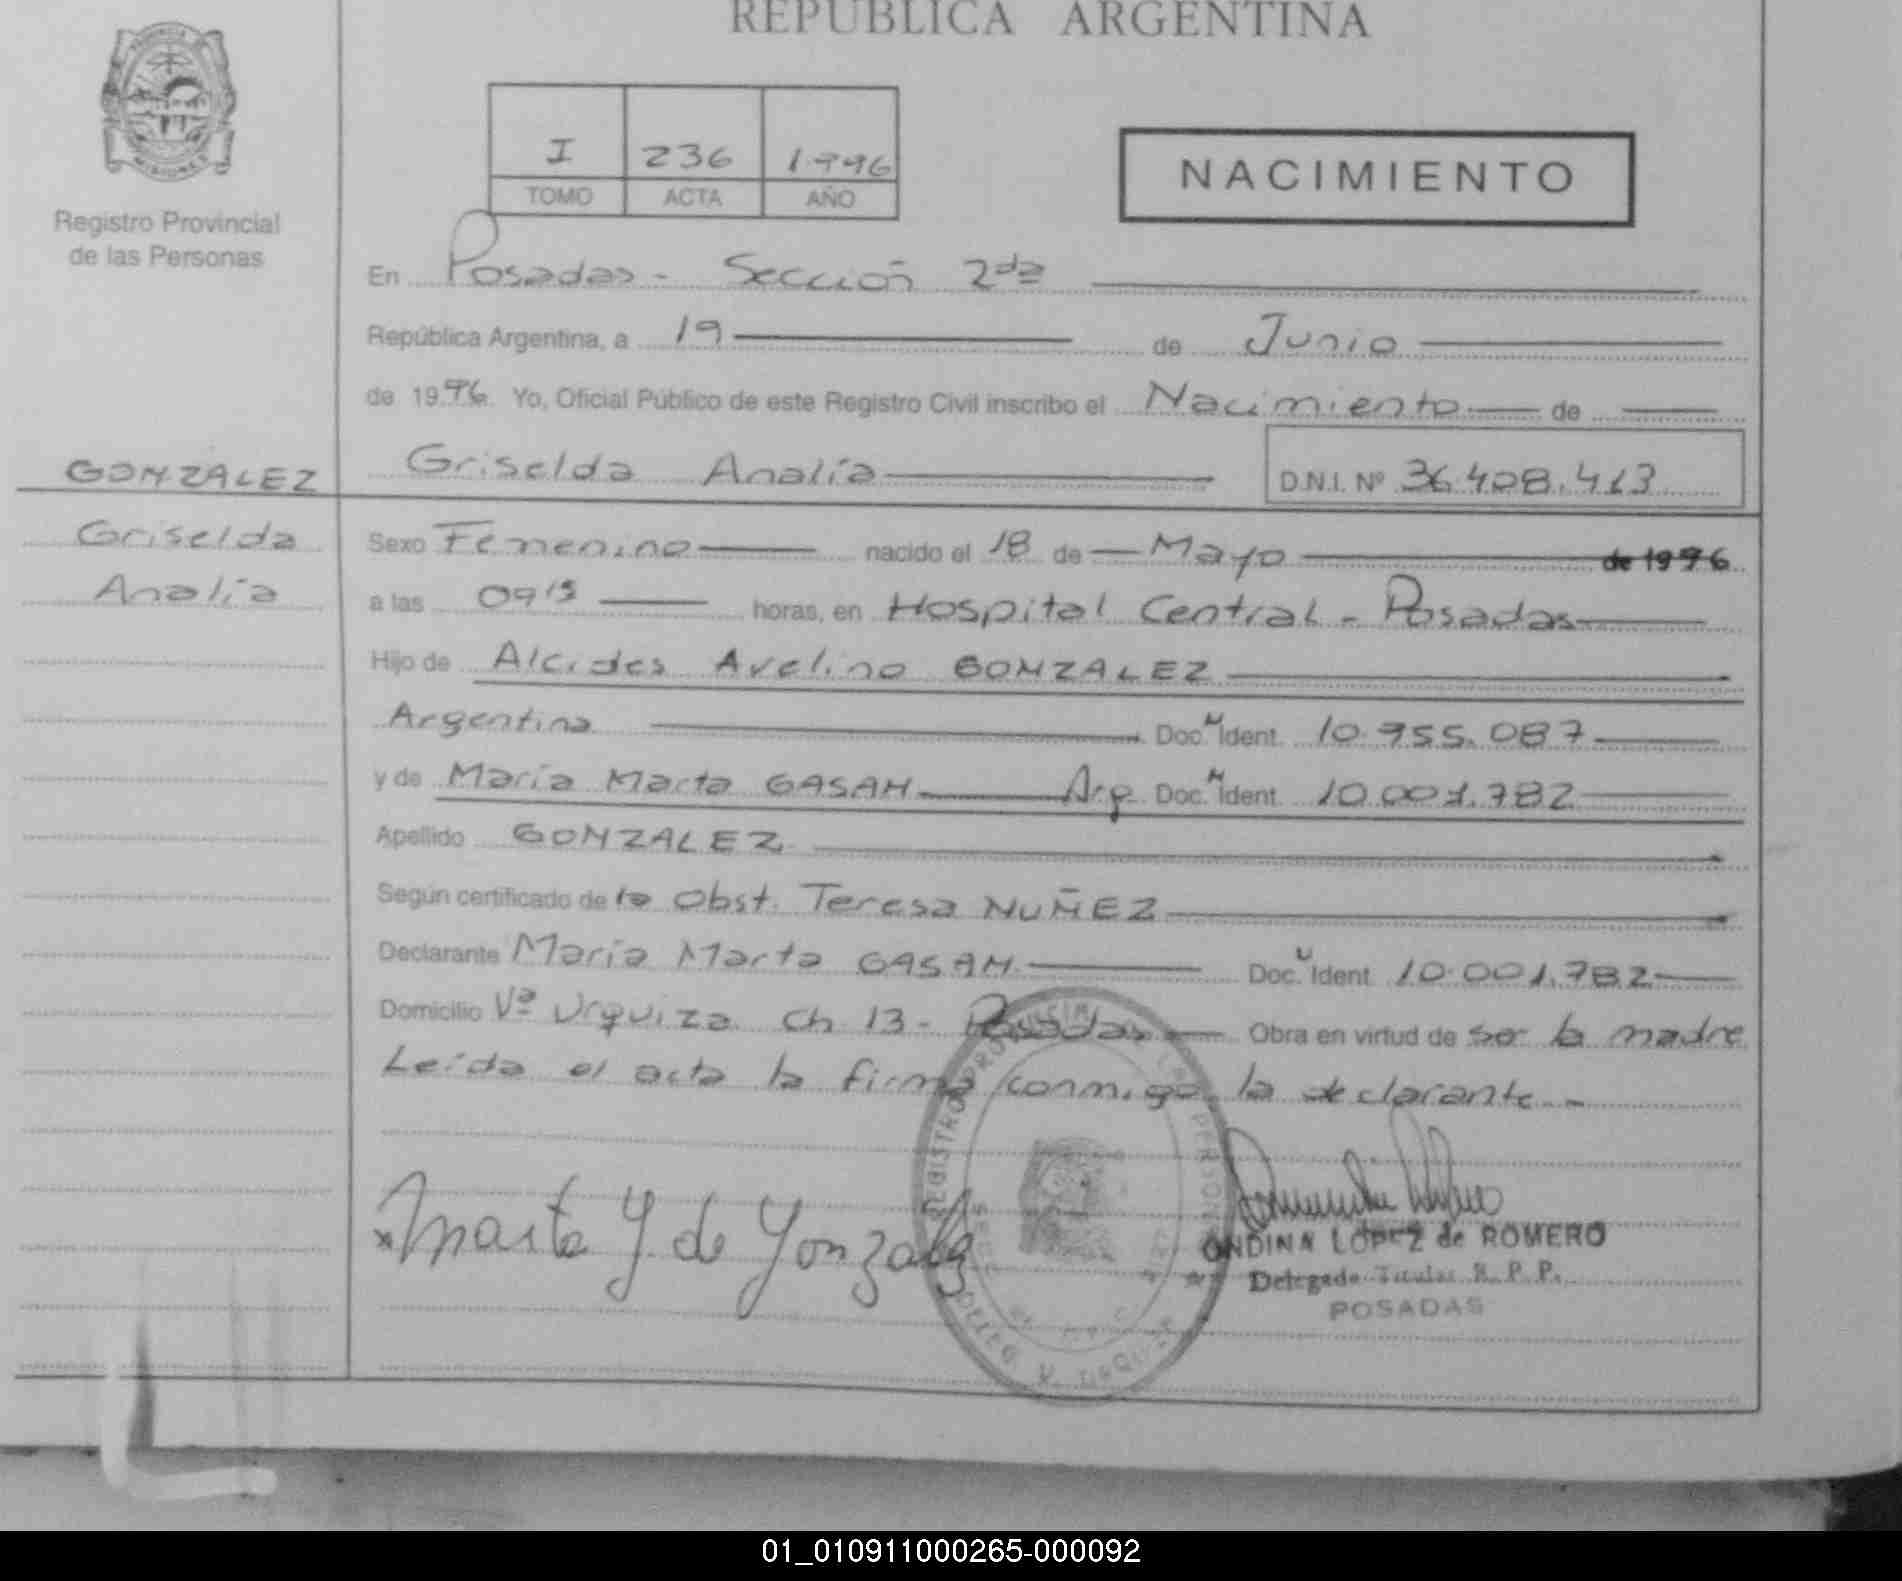 REPUBLICA ARGENTINA
PROVINCIA DE
MISIONES
Registro Provincial
de las Personas
I 236 1996
TOMO ACTA AÑO
NACIMIENTO
En Posadas - Sección 2da
República Argentina, a 19 de Junio
de 1996 Yo, Oficial Público de este Registro Civil inscribo el Nacimiento de
GONZALEZ Griselda Analía D.N.I. Nº 36.408.413
Griselda
Analía
Sexo Femenino nacido el 18 de Mayo de 1996
a las 09 15 horas, en Hospital Central - Posadas
Hijo de Alcides Avelino GONZALEZ
Argentino Doc. M Ident. 10.955.087
y de María Marta GASAM Arg. Doc. M Ident. 10.001.782
Apellido GONZALEZ
Según certificado de la Obst. Teresa NUÑEZ
Declarante María Marta GASAM Doc. U Ident. 10.001.782
Domicilio Vª Urquiza Ch 13 - Posadas Obra en virtud de ser la madre
Leída el acta la firma conmigo la declarante -
REGISTRO PROVINCIAL DE LAS PERSONAS
Marta G de Gonzalez
ONDINA LOPEZ de ROMERO
Delegado Titular R. P. P.
POSADAS
01_010911000265-000092